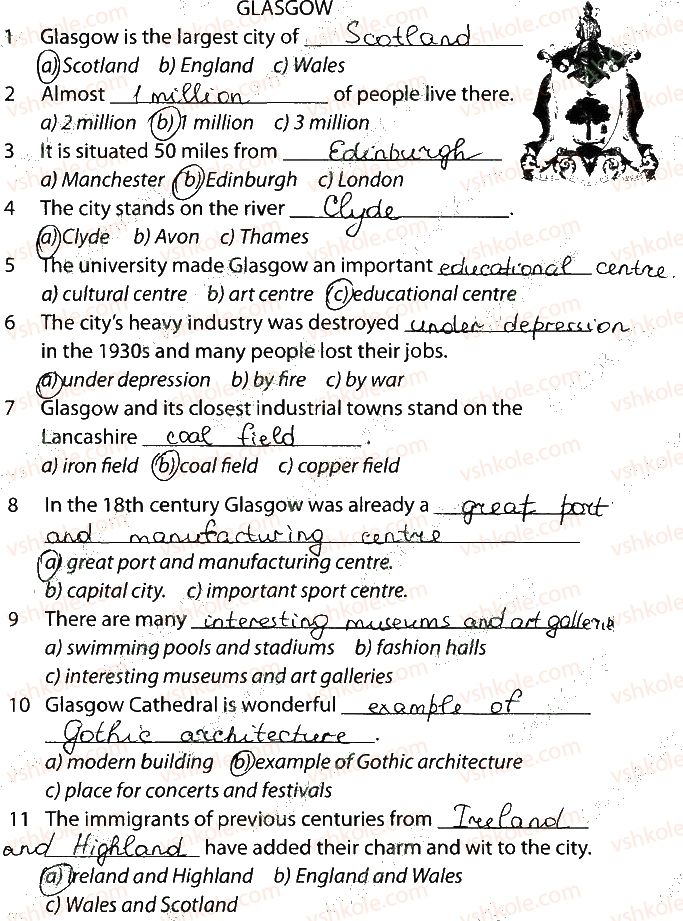 GLASGOW
1 Glasgow is the largest city of Scotland
a) Scotland b) England c) Wales
2 Almost 1 million of people live there.
a) 2 million b) 1 million c) 3 million
3 It is situated 50 miles from Edinburgh
a) Manchester b) Edinburgh c) London
4 The city stands on the river Clyde.
a) Clyde b) Avon c) Thames
5 The university made Glasgow an important educational centre.
a) cultural centre b) art centre c) educational centre
6 The city's heavy industry was destroyed under depression
in the 1930s and many people lost their jobs.
a) under depression b) by fire c) by war
7 Glasgow and its closest industrial towns stand on the
Lancashire coal field.
a) iron field b) coal field c) copper field
8 In the 18th century Glasgow was already a great port
and manufacturing centre
a) great port and manufacturing centre.
b) capital city. c) important sport centre.
9 There are many interesting museums and art galleries
a) swimming pools and stadiums b) fashion halls
c) interesting museums and art galleries
10 Glasgow Cathedral is wonderful example of
Gothic architecture.
a) modern building b) example of Gothic architecture
c) place for concerts and festivals
11 The immigrants of previous centuries from Ireland
and Highland have added their charm and wit to the city.
a) Ireland and Highland b) England and Wales
c) Wales and Scotland
vshkole.com